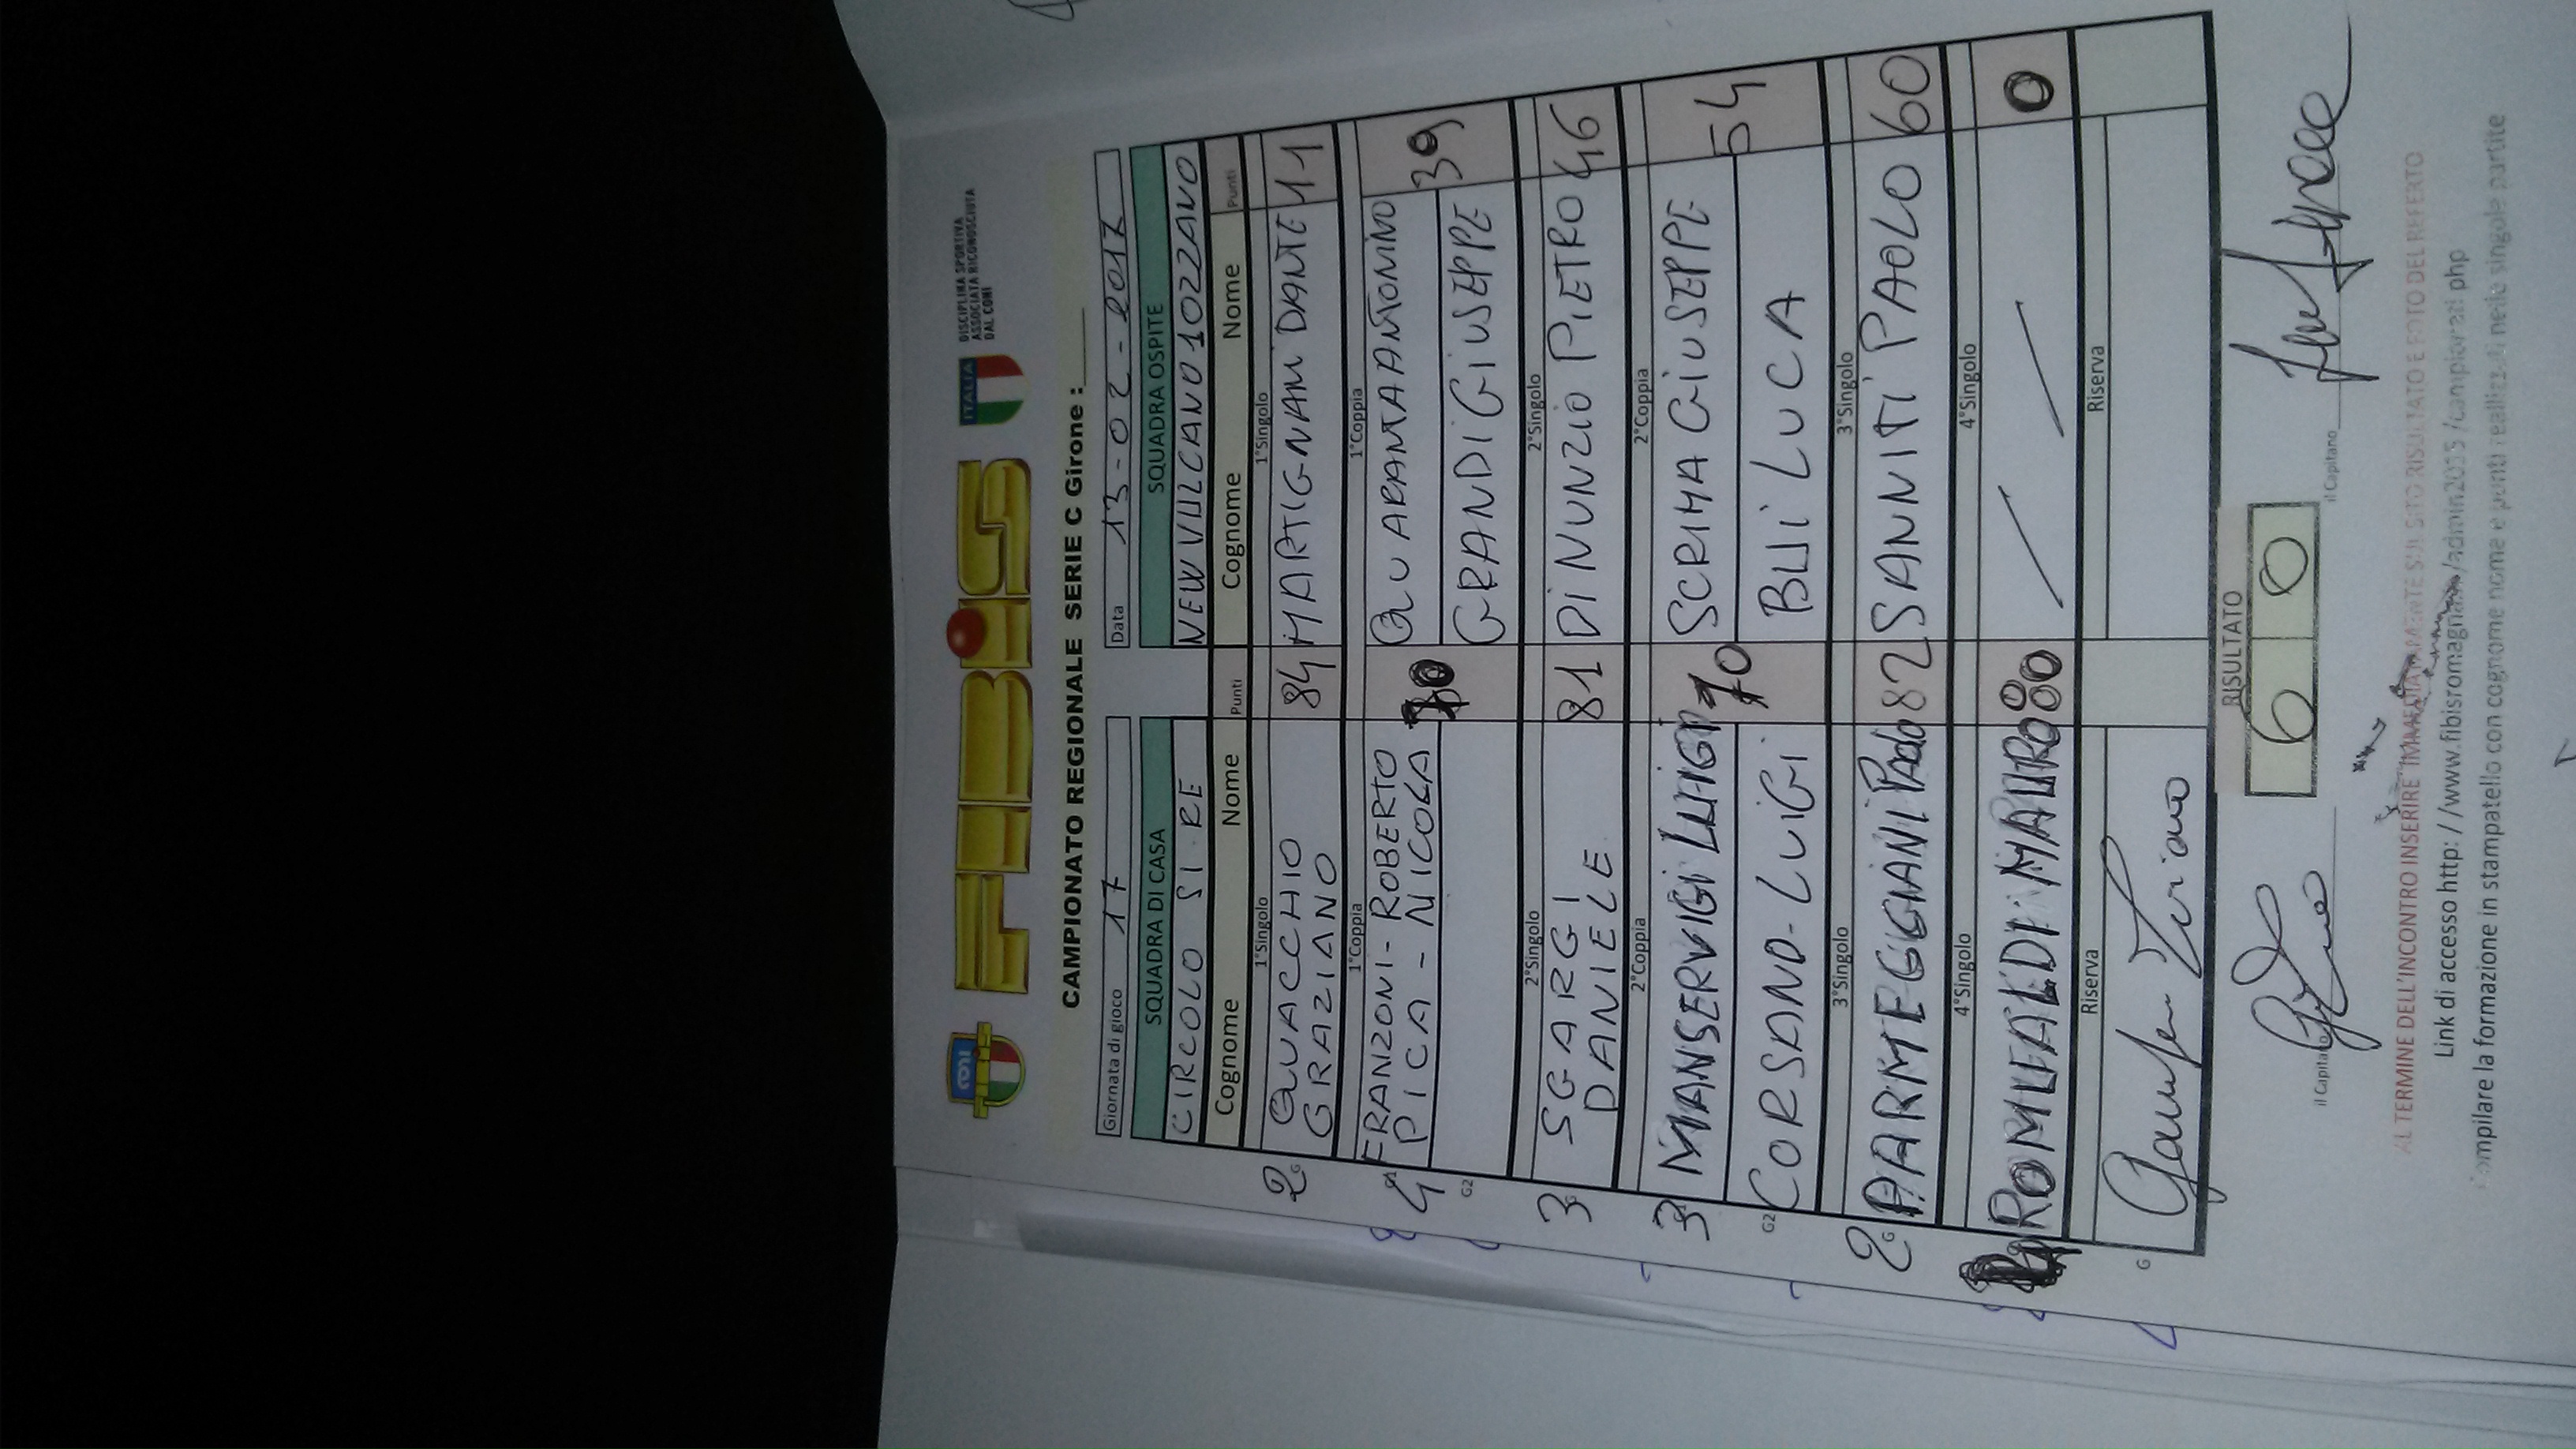 CONI
FIBIS
ITALIA
DISCIPLINA SPORTIVA
ASSOCIATA RICONOSCIUTA
DAL CONI
CAMPIONATO REGIONALE SERIE C Girone :
Giornata di gioco 17
Data 13-02-2017
SQUADRA DI CASA
SQUADRA OSPITE
CIRCOLO SI RE
NEW VULCANO 1 OZZANO
Cognome Nome Punti Cognome Nome Punti
1°Singolo 1°Singolo
2 G QUACCHIO GRAZIANO 84 MARTIGNANI DANTE 11
1°Coppia 1°Coppia
4 FRANZONI - ROBERTO QUARANTA ANTONINO 39
PICA - NICOLA
G2 GRANDI GIUSEPPE
2°Singolo 2°Singolo
3 SGARGI DANIELE 81 DI NUNZIO PIETRO 46
2°Coppia 2°Coppia
3 MANSERVIGI LUIGI 70 SCRIMA GIUSEPPE 54
G2 CORSANO - LUIGI BUI LUCA
3°Singolo 3°Singolo
2 G PARMEGGIANI Paolo 82 SANNITI PAOLO 60
4°Singolo 4°Singolo
ROMUALDI MAURO 80 0
Riserva Riserva
G
RISULTATO
6 0
il Capitano il Capitano
AL TERMINE DELL'INCONTRO INSERIRE IMMEDIATAMENTE SUL SITO RISULTATO E FOTO DEL REFERTO
Link di accesso http: / /www.fibisromagna /admin2015 /campionati php
compilare la formazione in stampatello con cognome nome e punti realizzati nelle singole partite